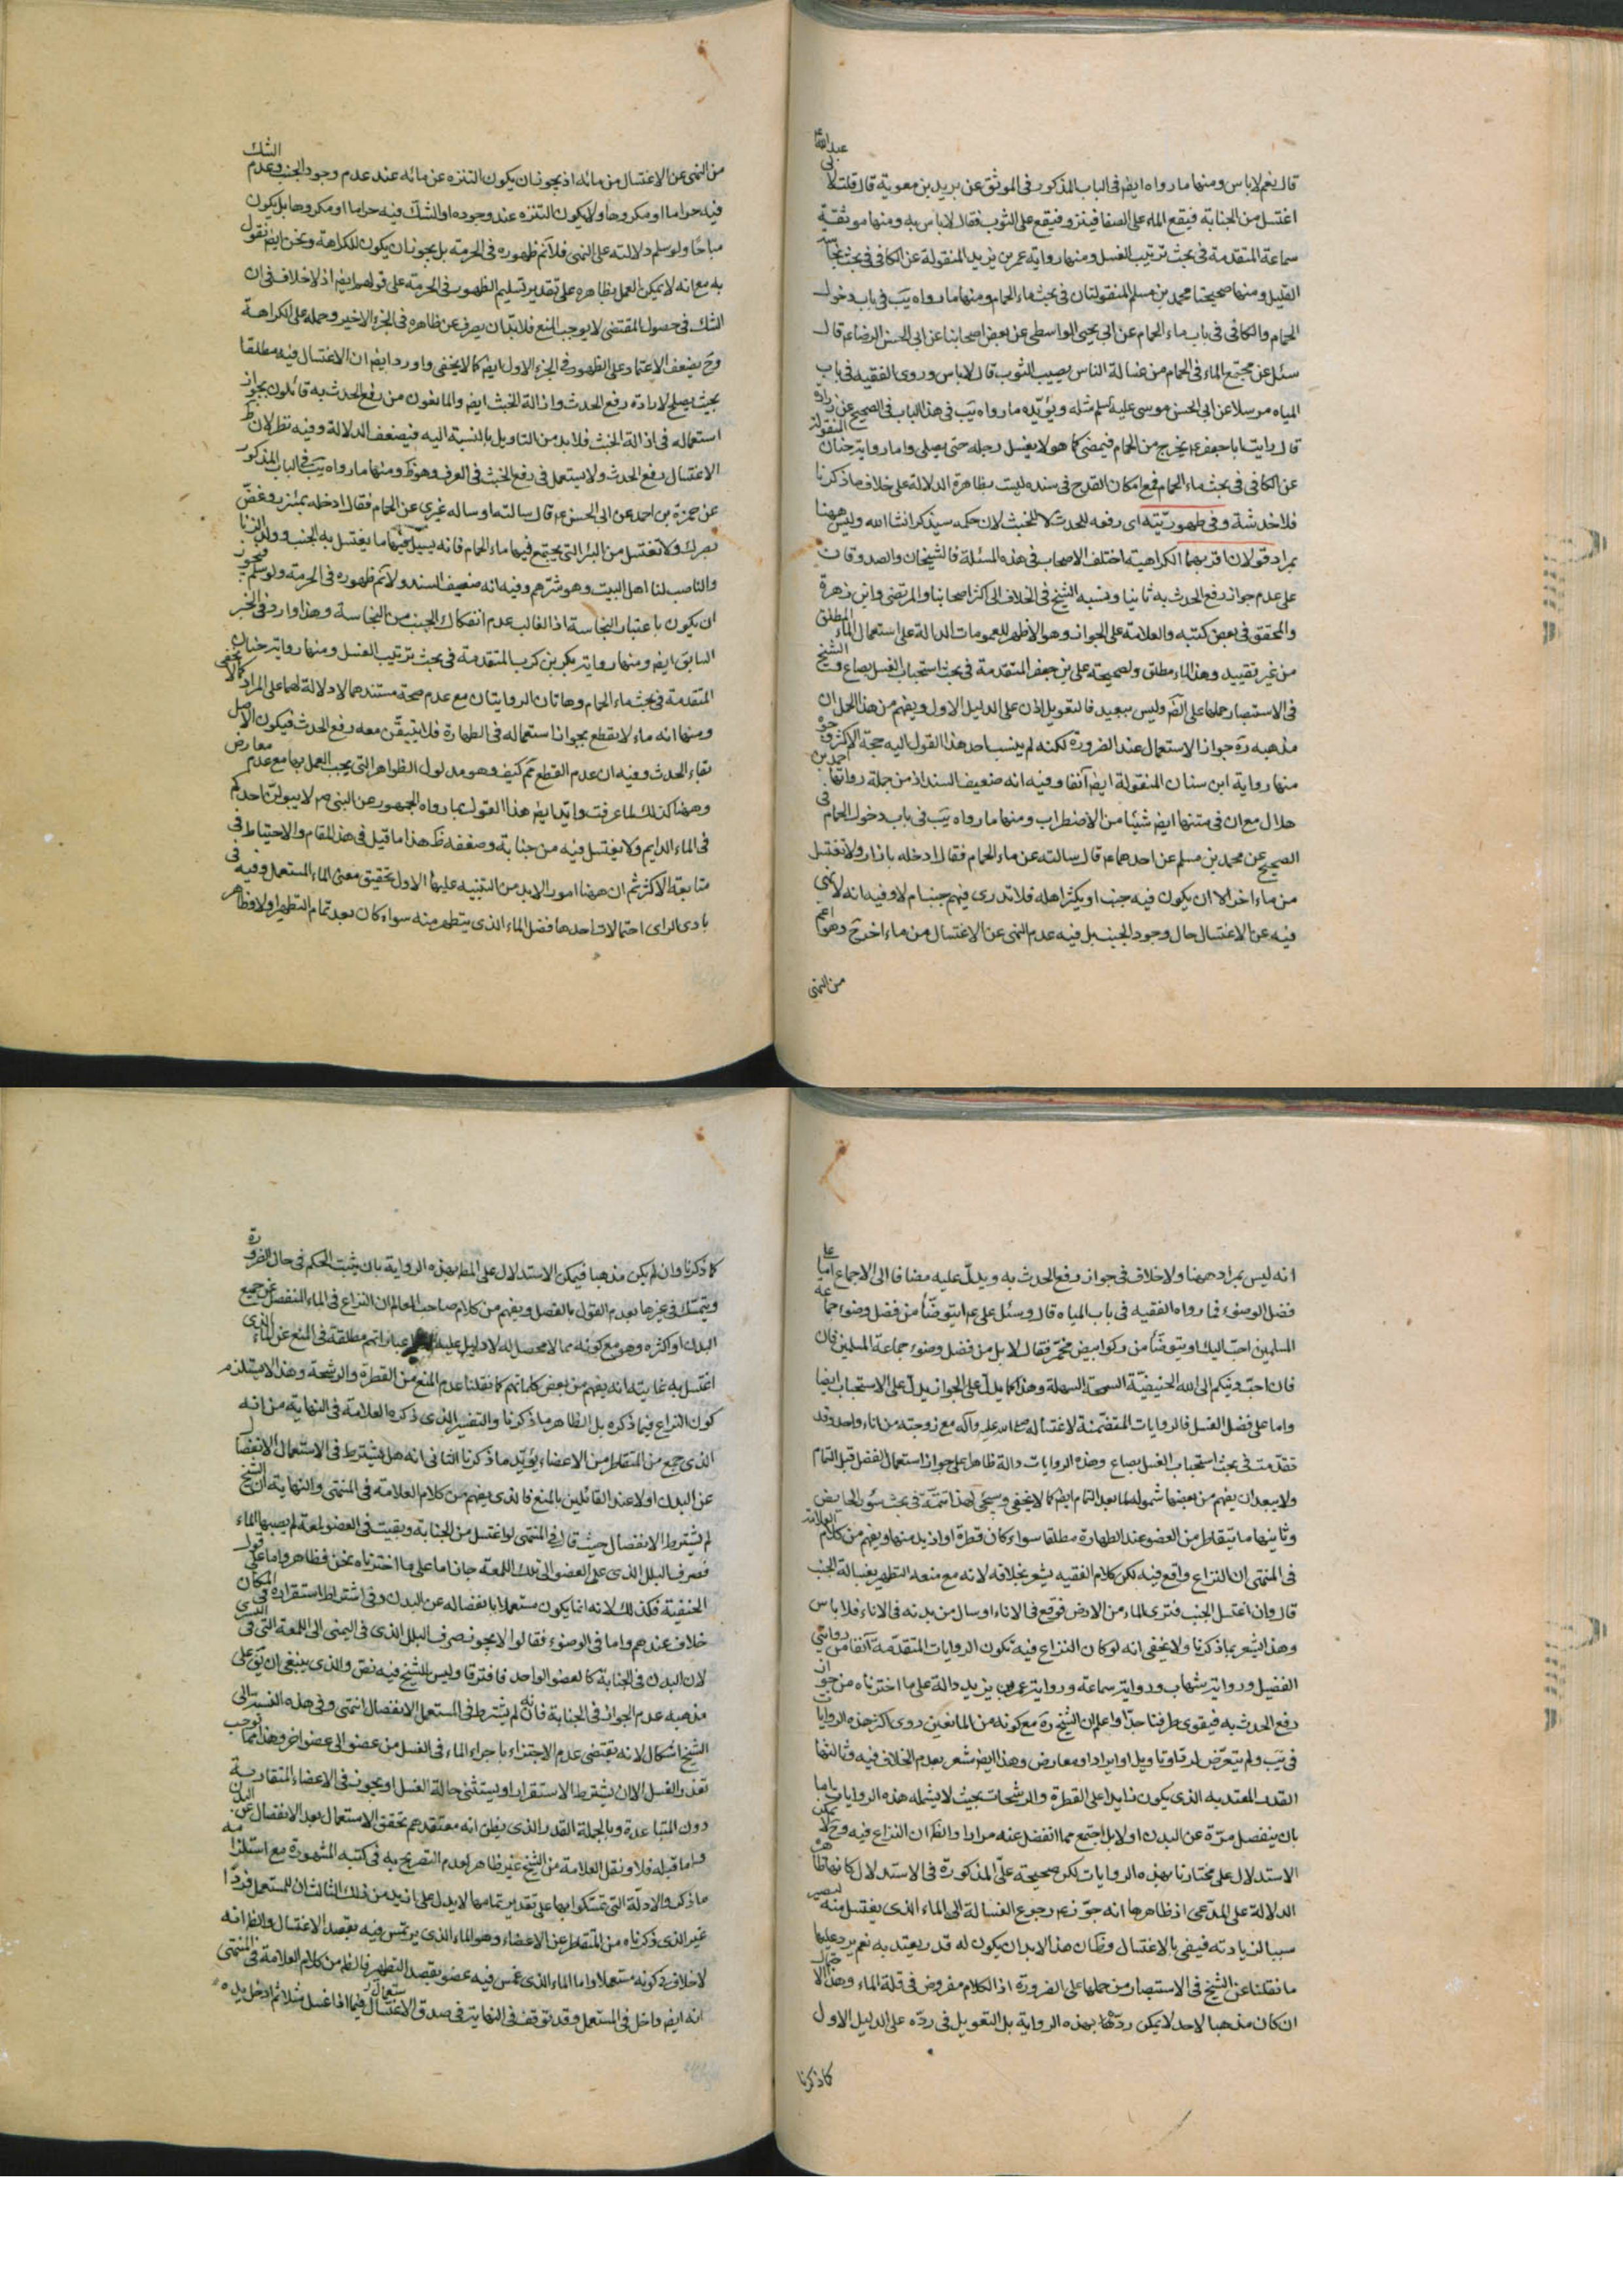 قال نعم لا باس ومنها ما رواه ايضا في الباب المذكور في الموثق عن بريد بن معوية قال قلت لابي عبد الله ع
اغتسل من الجنابة فيقع الماء على الصفا فينزو فيقع على الثوب فقال لا باس به ومنها موثقة
سماعة المتقدمة في بحث ترتيب الغسل ومنها رواية عمر بن يزيد المنقولة عن الكافي في بحث نجاسة
القليل ومنها صحيحتا محمد بن مسلم المنقولتان في بحث ماء الحمام ومنها ما رواه يب في باب دخول
الحمام والكافي في باب ماء الحمام عن ابي يحيى الواسطي عن بعض اصحابنا عن ابي الحسن الرضا ع قال
سئل عن مجتمع الماء في الحمام من غسالة الناس يصيب الثوب قال لا باس وروى الفقيه في باب
المياه مرسلا عن ابي الحسن موسى عليه السلم مثله ويؤيده ما رواه يب في هذا الباب في الصحيح عن زرارة
قال رايت ابا جعفر ع يخرج من الحمام فيمضي كما هو لا يغسل رجله حتى يصلي واما رواية حنان المنقولة
عن الكافي في بحث ماء الحمام فمع امكان القدح في سنده ليست بظاهرة الدلالة على خلاف ما ذكرنا
فلا خدشة وفي طهوريته اى رفعه للحدث لا للخبث لان حكمه سيذكر انشا الله وليس ههنا
بمراد قولان اقربهما الكراهية اختلف الاصحاب في هذه المسئلة فالشيخان والصدوقان
على عدم جواز رفع الحدث به ثانيا ونسبه الشيخ في الخلاف الى اكثر اصحابنا والمرتضى وابن زهرة
والمحقق في بعض كتبه والعلامة على الجواز وهو الاظهر للعمومات الدالة على استعمال الماء المطلق
من غير تقييد وهذا الماء مطلق ولصحيحة علي بن جعفر المتقدمة في بحث استحباب الغسل بصاع وحمل الشيخ
في الاستبصار حملها على الضرورة وليس ببعيد فالتعويل اذن على الدليل الاول ويفهم من هذا الحمل ان
مذهبه ره جواز الاستعمال عند الضرورة لكنه لم ينسب احد هذا القول اليه حجة الاكثر وجوه
منها رواية ابن سنان المنقولة ايضا آنفا وفيه انه ضعيف السند اذ من جملة رواتها احمد بن
هلال مع ان في متنها ايضا شيئا من الاضطراب ومنها ما رواه يب في باب دخول الحمام في
الصحيح عن محمد بن مسلم عن احدهما ع قال سالته عن ماء الحمام فقال ادخله بازار ولا تغتسل
من ماء اخر الا ان يكون فيه جنب او يكثر اهله فلا تدري فيهم جنب ام لا وفيه انه لا نهي
فيه عن الاغتسال حال وجود الجنب بل فيه عدم النهي عن الاغتسال من ماء اخر ح وهو اعم
من النهي
من النهي عن الاغتسال من مائه اذ يجوز ان يكون التنزه عن مائه عند عدم وجود الجنب وعدم الشك
فيه حراما او مكروها ولا يكون التنزه عند وجوده او الشك فيه حراما او مكروها بل يكون
مباحا ولو سلم دلالته على النهي فلا نم ظهوره في الحرمة بل يجوز ان يكون للكراهة ونحن ايضا نقول
به مع انه لا يمكن العمل بظاهره على تقدير تسليم الظهور في الحرمة على قولهم ايضا اذ لا خلاف في ان
الشك في حصول المقتضى لا يوجب المنع فلا بد ان يصرف عن ظاهره في الجزء الاخير وحمله على الكراهة
وح يضعف الاعتماد على الظهور في الجزء الاول ايضا كما لا يخفى واورد ايضا ان الاغتسال فيه مطلقا
بحيث يصلح لارادة رفع الحدث وازالة الخبث ايضا والمانعون من رفع الحدث به قائلون بجواز
استعماله في ازالة الخبث فلا بد من التاويل بالنسبة اليه فيضعف الدلالة وفيه نظر لان ظ
الاغتسال رفع الحدث ولا يستعمل في رفع الخبث في العرف وهو ذكر ومنها ما رواه يب في الباب المذكور
عن حمزة بن احمد عن ابي الحسن ع قال سالته او ساله غيري عن الحمام فقال ادخله بمئزر وغض
بصرك ولا تغتسل من البئر التي يجتمع فيها ماء الحمام فانه يسيل فيها ما يغتسل به الجنب وولد الزنا
والناصب لنا اهل البيت وهو شرهم وفيه انه ضعيف السند ولا نم ظهوره في الحرمة ولو سلم فيجوز
ان يكون باعتبار النجاسة اذ الغالب عدم انفكاك الجنب من النجاسة وهذا وارد في الخبر
السابق ايضا ومنها رواية بكر بن كرب المتقدمة في بحث ترتيب الغسل ومنها رواية حنان
المتقدمة في بحث ماء الحمام وهاتان الروايتان مع عدم صحة مستندهما لا دلالة لهما على المراد كما لا يخفى
ومنها انه ماء لا يقطع بجواز استعماله في الطهارة فلا يتيقن معه رفع الحدث فيكون الاصل
بقاء الحدث وفيه ان عدم القطع نم كيف وهو مدلول الظواهر التي يجب العمل بها مع عدم معارض
وههنا كذلك لما عرفت وايد ايضا هذا القول بما رواه الجمهور عن النبي ص لا يبولن احدكم
في الماء الدايم ولا يغتسل فيه من جنابة وضعفه ظ هذا ما قيل في هذا المقام والاحتياط في
متابعة الاكثر ثم ان ههنا امور لا بد من التنبيه عليها الاول تحقيق معنى الماء المستعمل وفيه في
بادي الراى احتمالات احدها فضل الماء الذي يتطهر منه سواء كان بعد تمام التطهير او لا وظاهر
انه ليس بمراد ههنا ولا خلاف في جواز رفع الحدث به ويدل عليه مضافا الى الاجماع اما على
فضل الوضوء فما رواه الفقيه في باب المياه قال وسئل علي ع ايتوضأ من فضل وضوء جماعة
المسلمين احب اليك او يتوضأ من ركو ابيض مخمر فقال لا بل من فضل وضوء جماعة المسلمين فان
فان احب دينكم الى الله الحنيفية السمحة السهلة وهذا كما يدل على الجواز يدل على الاستحباب ايضا
واما على فضل الغسل فالروايات المتضمنة لاغتساله صلى الله عليه وآله مع زوجته من اناء واحد وقد
تقدمت في بحث استحباب الغسل بصاع وهذه الروايات دالة ظاهرا على جواز استعمال الفضل قبل التمام
ولا يبعد ان يفهم من بعضها شموله لما بعد التمام ايضا كما لا يخفى وسيجئ لهذا تتمة في بحث سؤر الحايض
وثانيها ما يتقاطر من العضو عند الطهارة مطلقا سواء كان قطرة او ازيد منها ويفهم من كلام العلامة
في المنتهى ان النزاع واقع فيه لكن كلام الفقيه يشعر بخلافه لانه مع منعه التطهر بغسالة الجنب
قال وان اغتسل الجنب فنزى الماء من الارض فوقع في الاناء او سال من بدنه في الاناء فلا باس
وهذا يشعر بما ذكرنا ولا يخفى انه لو كان النزاع فيه تكون الروايات المتقدمة آنفا من روايتي
الفضيل ورواية شهاب ورواية سماعة ورواية عمر بن يزيد دالة على ما اخترناه من جواز
رفع الحدث به فيقوى طرفنا جدا واعلم ان الشيخ ره مع كونه من المانعين روى اكثر هذه الروايات
في يب ولم يتعرض لرد او تاويل او ايراد او معارض وهذا ايضا يشعر بعدم الخلاف فيه وثالثها
القدر المعتد به الذي يكون زايدا على القطرة والرشحات بحيث لا يشمله هذه الروايات اما
بان ينفصل مرة عن البدن او لا بل اجتمع مما انفصل عنه مرارا والظ ان النزاع فيه وح لا يمكن
الاستدلال على مختارنا بهذه الروايات لكن صحيحة علي المذكورة في الاستدلال كانها ظاهرة
الدلالة على المدعى اذ ظاهرها انه جوز ع رجوع الغسالة الى الماء الذي يغتسل منه لتصير
سببا لزيادته فيفي بالاغتسال وظ ان هذا لا بد ان يكون له قدر يعتد به نعم يرد عليها
ما نقلنا عن الشيخ في الاستبصار من حملها على الضرورة اذ الكلام مفروض في قلة الماء وهذا الاحتمال
ان كان مذهبا لاحد لا يمكن رده بهذه الرواية بل التعويل في رده على الدليل الاول
كما ذكرنا
كما ذكرنا وان لم يكن مذهبا فيمكن الاستدلال على المط بهذه الرواية بان يثبت الحكم في حال الضرورة
ويتمسك في غيرها بعدم القول بالفصل ويفهم من كلام صاحب المعالم ان النزاع في الماء المنفصل عن جميع
البدن او اكثره وهو مع كونه مما لا محصل له لا دليل عليه عباراتهم مطلقة في المنع عن الماء الذي
اغتسل به غايته انه يفهم من بعض كلماتهم كما نقلنا عدم المنع من القطرة والرشحة وهذا لا يستلزم
كون النزاع فيما ذكره بل الظاهر ما ذكرنا والتفسير الذي ذكره العلامة في النهاية من انه
الذي جمع من المتقاطر من الاعضاء يؤيد ما ذكرنا الثاني انه هل يشترط في الاستعمال الانفصال
عن البدن او لا عند القائلين بالمنع فالذي يفهم من كلام العلامة في المنتهى والنهاية ان الشيخ
لم يشترط الانفصال حيث قال في المنتهى لو اغتسل من الجنابة وبقيت في العضو لمعة لم يصبها الماء
فصرف البلل الذي على العضو الى تلك اللمعة جاز اما على ما اخترناه نحن فظاهر واما على قول
الحنفية فكذلك لانه انما يكون مستعملا بانفصاله عن البدن وفي اشتراط استقراره في المكان
خلاف عندهم واما في الوضوء فقالوا لا يجوز صرف البلل الذي في اليمنى الى اللمعة التي في اليسرى
لان البدن في الجنابة كالعضو الواحد فافترقا وليس للشيخ فيه نص والذي ينبغي ان يق على
مذهبه عدم الجواز في الجنابة فانه لم يشترط في المستعمل الانفصال انتهى وفي هذه النسبة الى
الشيخ اشكال لانه يقتضي عدم الاجتزاء باجراء الماء في الغسل من عضو الى عضو اخر وهذا مما يوجب
تعذر الغسل الا ان يشترط الاستقرار او يستثنى حالة الغسل او يجوز في الاعضاء المتقاربة
دون المتباعدة وبالجملة القدر الذي يظن انه معتقدهم تحقق الاستعمال بعد الانفصال عن البدن
واما قبله فلا ونقل العلامة من الشيخ غير ظاهر لعدم التصريح به في كتبه المشهورة مع استلزامه
ما ذكر والادلة التي تمسكوا بها على تقدير تمامها لا يدل على ازيد من ذلك الثالث ان للمستعمل فردا
غير الذي ذكرناه من المتقاطر عن الاعضاء وهو الماء الذي يرتمس فيه بقصد الاغتسال والظ انه
لا خلاف في كونه مستعملا واما الماء الذي غمس فيه عضو بقصد التطهر فالظ من كلام العلامة في المنتهى
انه ايضا داخل في المستعمل وقد توقف في النهاية في صدق الاستعمال فيما اذا غسل مثلا ثم ادخل يده